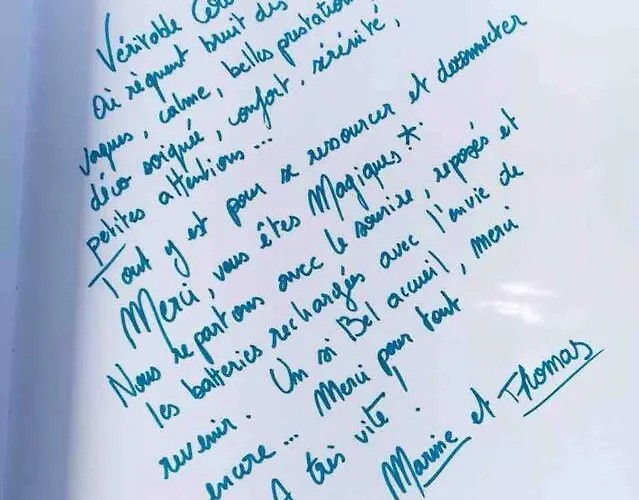 Véritable
Où règnent bruit des
vagues, calme, belles prestations,
déco soignée, confort, sérénité,
petites attentions...
Tout y est pour se ressourcer et deconnecter
Merci, vous êtes Magiques *.
Nous repartons avec le sourire, reposés et
les batteries rechargés avec l'envie de
revenir. Un si Bel accueil, merci
encore... Merci pour tout
A très vite !
Marine et Thomas